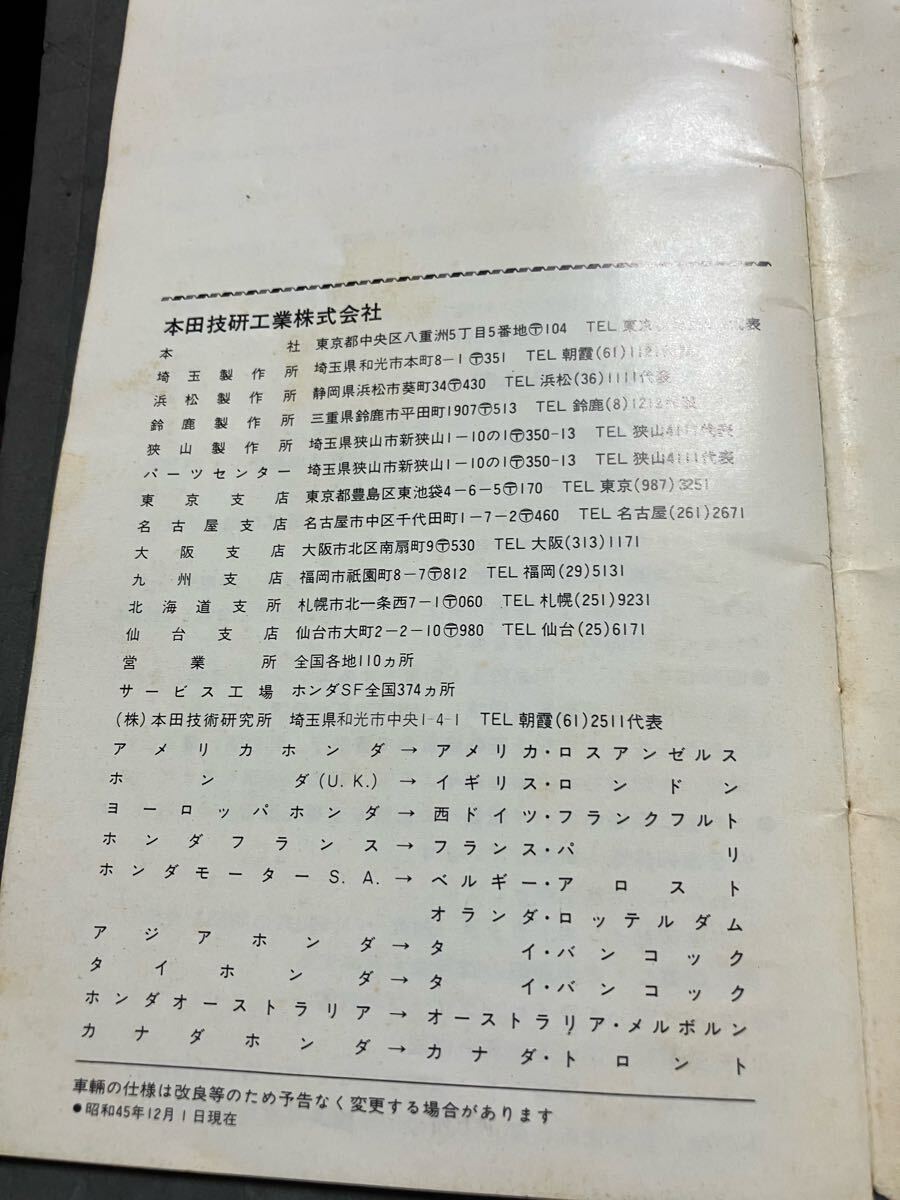 本田技研工業株式会社
本社 東京都中央区八重洲5丁目5番地〒104 TEL 東京 代表
埼玉製作所 埼玉県和光市本町8-1〒351 TEL 朝霞(61)11 代表
浜松製作所 静岡県浜松市葵町34〒430 TEL 浜松(36)1111代表
鈴鹿製作所 三重県鈴鹿市平田町1907〒513 TEL 鈴鹿(8)1212代表
狭山製作所 埼玉県狭山市新狭山1-10の1〒350-13 TEL 狭山4111代表
パーツセンター 埼玉県狭山市新狭山1-10の1〒350-13 TEL 狭山4111代表
東京支店 東京都豊島区東池袋4-6-5〒170 TEL 東京(987)3251
名古屋支店 名古屋市中区千代田町1-7-2〒460 TEL 名古屋(261)2671
大阪支店 大阪市北区南扇町9〒530 TEL 大阪(313)1171
九州支店 福岡市祇園町8-7〒812 TEL 福岡(29)5131
北海道支所 札幌市北一条西7-1〒060 TEL 札幌(251)9231
仙台支店 仙台市大町2-2-10〒980 TEL 仙台(25)6171
営業所 全国各地110ヵ所
サービス工場 ホンダSF全国374ヵ所
(株)本田技術研究所 埼玉県和光市中央1-4-1 TEL 朝霞(61)2511代表
アメリカホンダ→アメリカ・ロスアンゼルス
ホンダ(U.K.)→イギリス・ロンドン
ヨーロッパホンダ→西ドイツ・フランクフルト
ホンダフランス→フランス・パリ
ホンダモーターS.A.→ベルギー・アロスト
オランダ・ロッテルダム
アジアホンダ→タイ・バンコック
タイホンダ→タイ・バンコック
ホンダオーストラリア→オーストラリア・メルボルン
カナダホンダ→カナダ・トロント
車輛の仕様は改良等のため予告なく変更する場合があります
●昭和45年12月1日現在